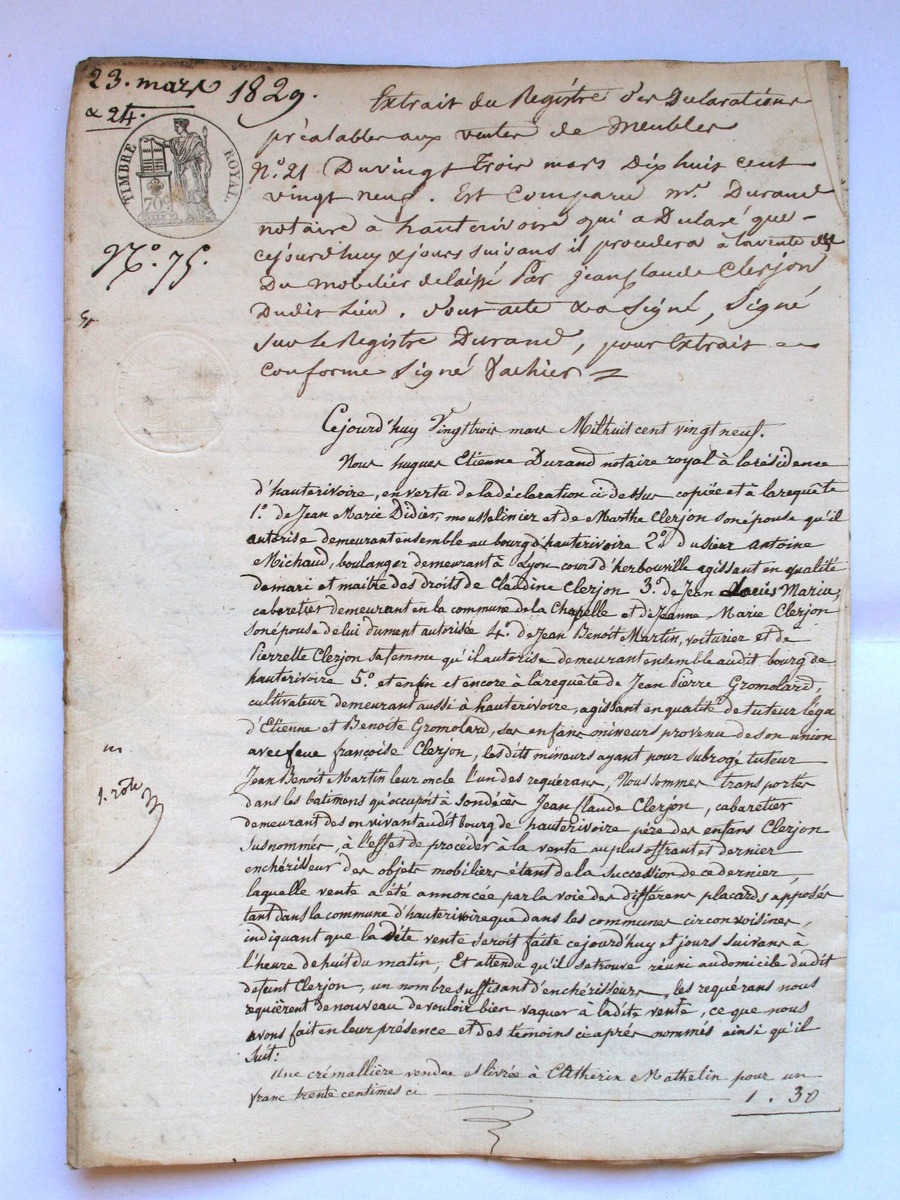 23. mars 1829.
& 24.
TIMBRE ROYAL
N.º 75.
1. role
Extrait du Registre des Declarations
préalables aux ventes de Meubles
Nº. 21 Du vingt Trois mars Dix huit cent
vingt neuf. Est Comparu mr. Durand
notaire à hauterivoire qui a Declaré que
cejourd'huy & jours suivans il procedera à la vente
Du mobilier delaissé Par jean Claude Clerjon
Dudit Lieu. Dont acte & a Signé, Signé
sur le Registre Durand, pour Extrait
conforme Signé Vachier
Cejourd'huy Vingt trois mars Mil huit cent vingt neuf.
Nous hugues Etienne Durand notaire royal à la résidence
d'hauterivoire, en vertu de la déclaration ci-dessus copiée et à la requête
1.º de Jean Marie Didier, mousselinier et de Marthe Clerjon son épouse qu'il
autorise demeurant ensemble au bourg d'hauterivoire 2.º du sieur Antoine
Michaud, boulanger demeurant à Lyon cours d'herbouville agissant en qualité
de mari et maitre des droits de Claudine Clerjon 3.º de Jean Marie
cabaretier demeurant en la commune de la Chapelle et de Jeanne Marie Clerjon
son épouse de lui dument autorisée 4.º de Jean Benoit Martin, voiturier et de
Pierrette Clerjon sa femme qu'il autorise demeurant ensemble audit bourg de
hauterivoire 5.º et enfin et encore à la requête de Jean Pierre Gromolard,
cultivateur demeurant aussi à hauterivoire, agissant en qualité de tuteur léga
d'Etienne et Benoite Gromolard, ses enfans mineurs provenu de son union
avec feue françoise Clerjon, les dits mineurs ayant pour subrogé tuteur
Jean Benoit Martin leur oncle l'un des requérans, Nous sommes transportés
dans les batimens qu'occupoit à son décès Jean Claude Clerjon, cabaretier
demeurant de son vivant audit bourg de hauterivoire père des enfans Clerjon
susnommés, à l'effet de procéder à la vente au plus offrant et dernier
enchérisseur des objets mobiliers étant de la succession de ce dernier,
laquelle vente a été annoncée par la voie des différens placards apposés
tant dans la commune d'hauterivoire que dans les communes circonvoisines,
indiquant que la dite vente seroit faite cejourd'huy et jours suivans à
l'heure de huit du matin, Et attendu qu'il se trouve réuni au domicile dudit
defunt Clerjon, un nombre suffisant d'enchérisseurs, les requérans nous
requièrent de nouveau de vouloir bien vaquer à la dite vente, ce que nous
avons fait en leur présence et des temoins ci après nommés ainsi qu'il
suit:
Une crémallière vendue et livrée à Catherin Mathelin pour un
franc trente centimes ci 1. 30